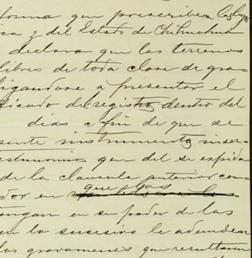 forma que prescriben
ca y del Estado de Chihuahua
declara que los terrenos
libres de toda clase de gra
ligandose a presentar el
ficado del registro, dentro del
dias a fin de que se
sente instrumento, inser
testimonios que del se expida
de la clausula anterior como
que pagos
dor en
tengan en su poder de las
en lo sucesivo le adeuden
los gravamenes que resultaren